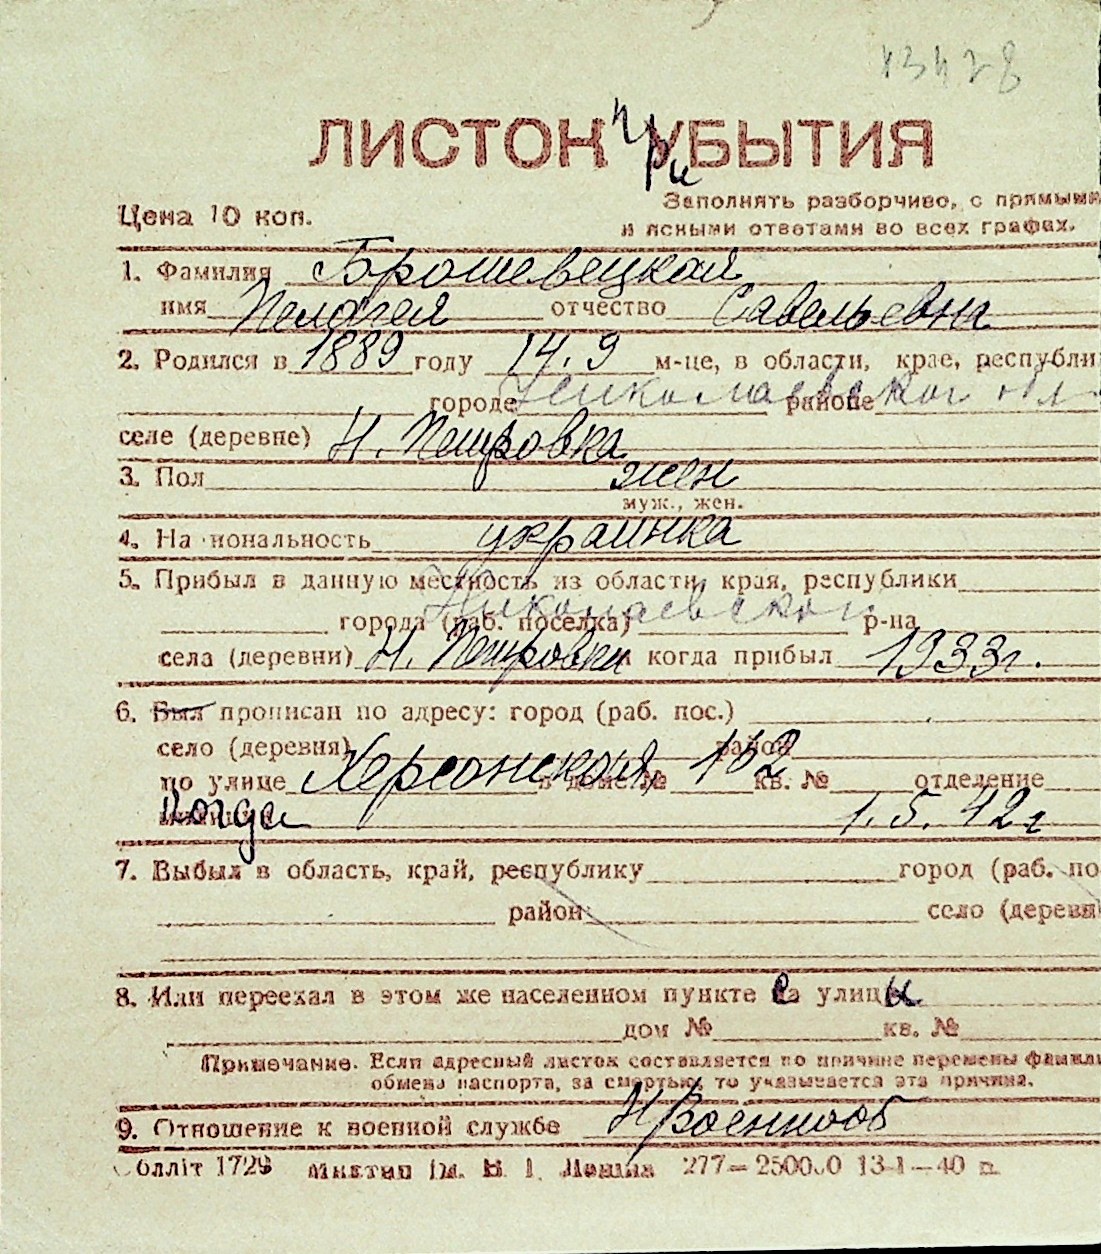 13428
ЛИСТОК при УБЫТИЯ
Цена 10 коп.
Заполнять разборчиво, с прямыми
и ясными ответами во всех графах.
1. Фамилия Брошевецкая
имя Пелагея отчество Савельевна
2. Родился в 1889 году 14.9 м-це, в области, крае, республи
городе Николаевской обл районе
селе (деревне) Н. Петровка
3. Пол жен
муж., жен.
4. На иональность украинка
5. Прибыл в данную местность из области, края, республики
города (раб. поселка) Николаевской р-на
села (деревни) Н. Петровки когда прибыл 1933г.
6. Был прописан по адресу: город (раб. пос.)
село (деревня) район
по улице Херсонская, 102 в доме № кв. № отделение
милиции когда 1.5.42г
7. Выбыл в область, край, республику город (раб. по
район село (деревн
8. Или переехал в этом же населенном пункте с улицы
дом № кв. №
Примечание. Если адресный листок составляется по причине перемены фамили
обмена паспорта, за смертью, то указывается эта причина.
9. Отношение к военной службе Н/Военнооб
блліт 1729 Миктип ім. В. І. Леніна 277—250000 13-I—40 п.